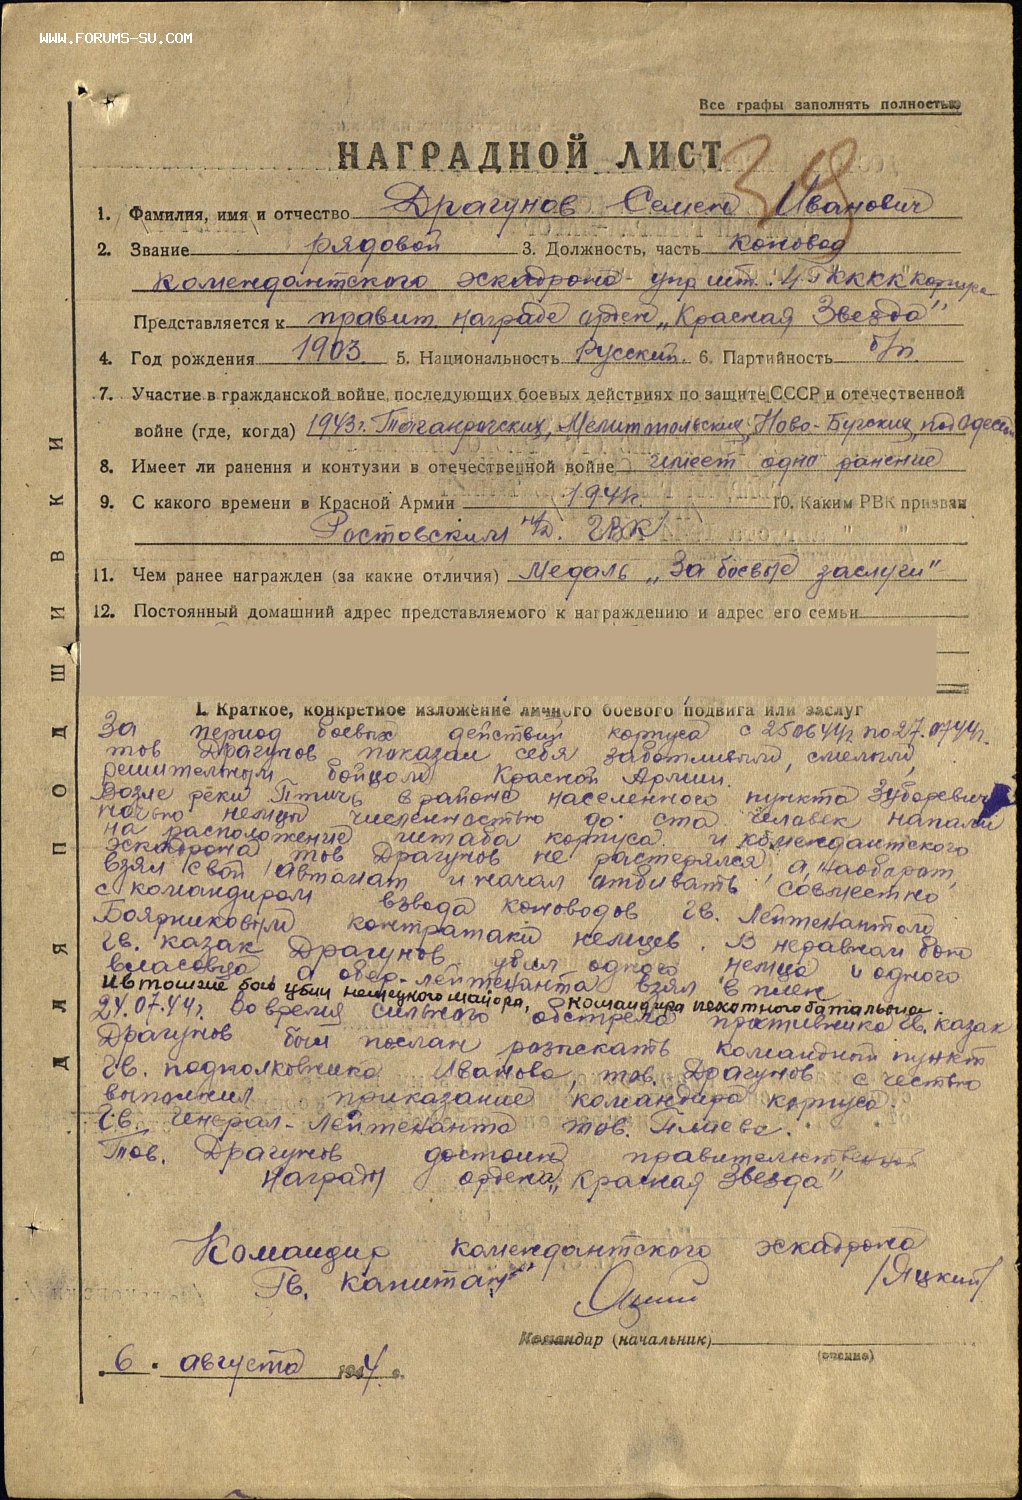 WWW.FORUMS-SU.COM
Все графы заполнять полностью
НАГРАДНОЙ ЛИСТ
39
1. Фамилия, имя и отчество Драгунов Семен Иванович
2. Звание рядовой 3. Должность, часть коновод
комендантского эскадрона упр шт. 4 ГККК корпуса
Представляется к правит. награде орден „Красная Звезда"
4. Год рождения 1903. 5. Национальность Русский. 6. Партийность б/п.
7. Участие в гражданской войне, последующих боевых действиях по защите СССР и отечественной
войне (где, когда) 1943г. Таганрогских, Мелитопольских, Ново-Бугских, под Одессой
8. Имеет ли ранения и контузии в отечественной войне имеет одно ранение
9. С какого времени в Красной Армии 1941г. 10. Каким РВК призван
Ростовским н/Д. ГВК
11. Чем ранее награжден (за какие отличия) Медаль „За боевые заслуги"
12. Постоянный домашний адрес представляемого к награждению и адрес его семьи
I. Краткое, конкретное изложение личного боевого подвига или заслуг
За период боевых действий корпуса с 250644г по 27.0744г.
тов Драгунов показал себя заботливым, смелым,
решительным бойцом Красной Армии.
Возле реки Птичь в районе населенного пункта Зубаревичи
ночью немцы численностью до ста человек напали
на расположение штаба корпуса и комендантского
эскадрона тов Драгунов не растерялся, а, наоборот,
взял свой автомат и начал отбивать совместно
с командиром взвода коноводов гв. Лейтенантом
Боярниковым контратаки немцев. В недавнем бою
гв. казак Драгунов убил одного немца и одного
власовца а обер-лейтенанта взял в плен
И в том же бою убил немецкого майора, командира пехотного батальона.
24.07.44г. Во время сильного обстрела противника гв. казак
Драгунов был послан разыскать командный пункт
гв. подполковника Иванова, тов. Драгунов с честью
выполнил приказание командира корпуса
Гв. Генерал-Лейтенанта тов. Плиева.
Тов. Драгунов достоин правительственной
награды ордена „Красная Звезда"
Командир комендантского эскадрона
Гв. капитан /Яцкий/
Командир (начальник)
(подпись)
6 августа 1944 г.
ДЛЯ ПОДШИВКИ